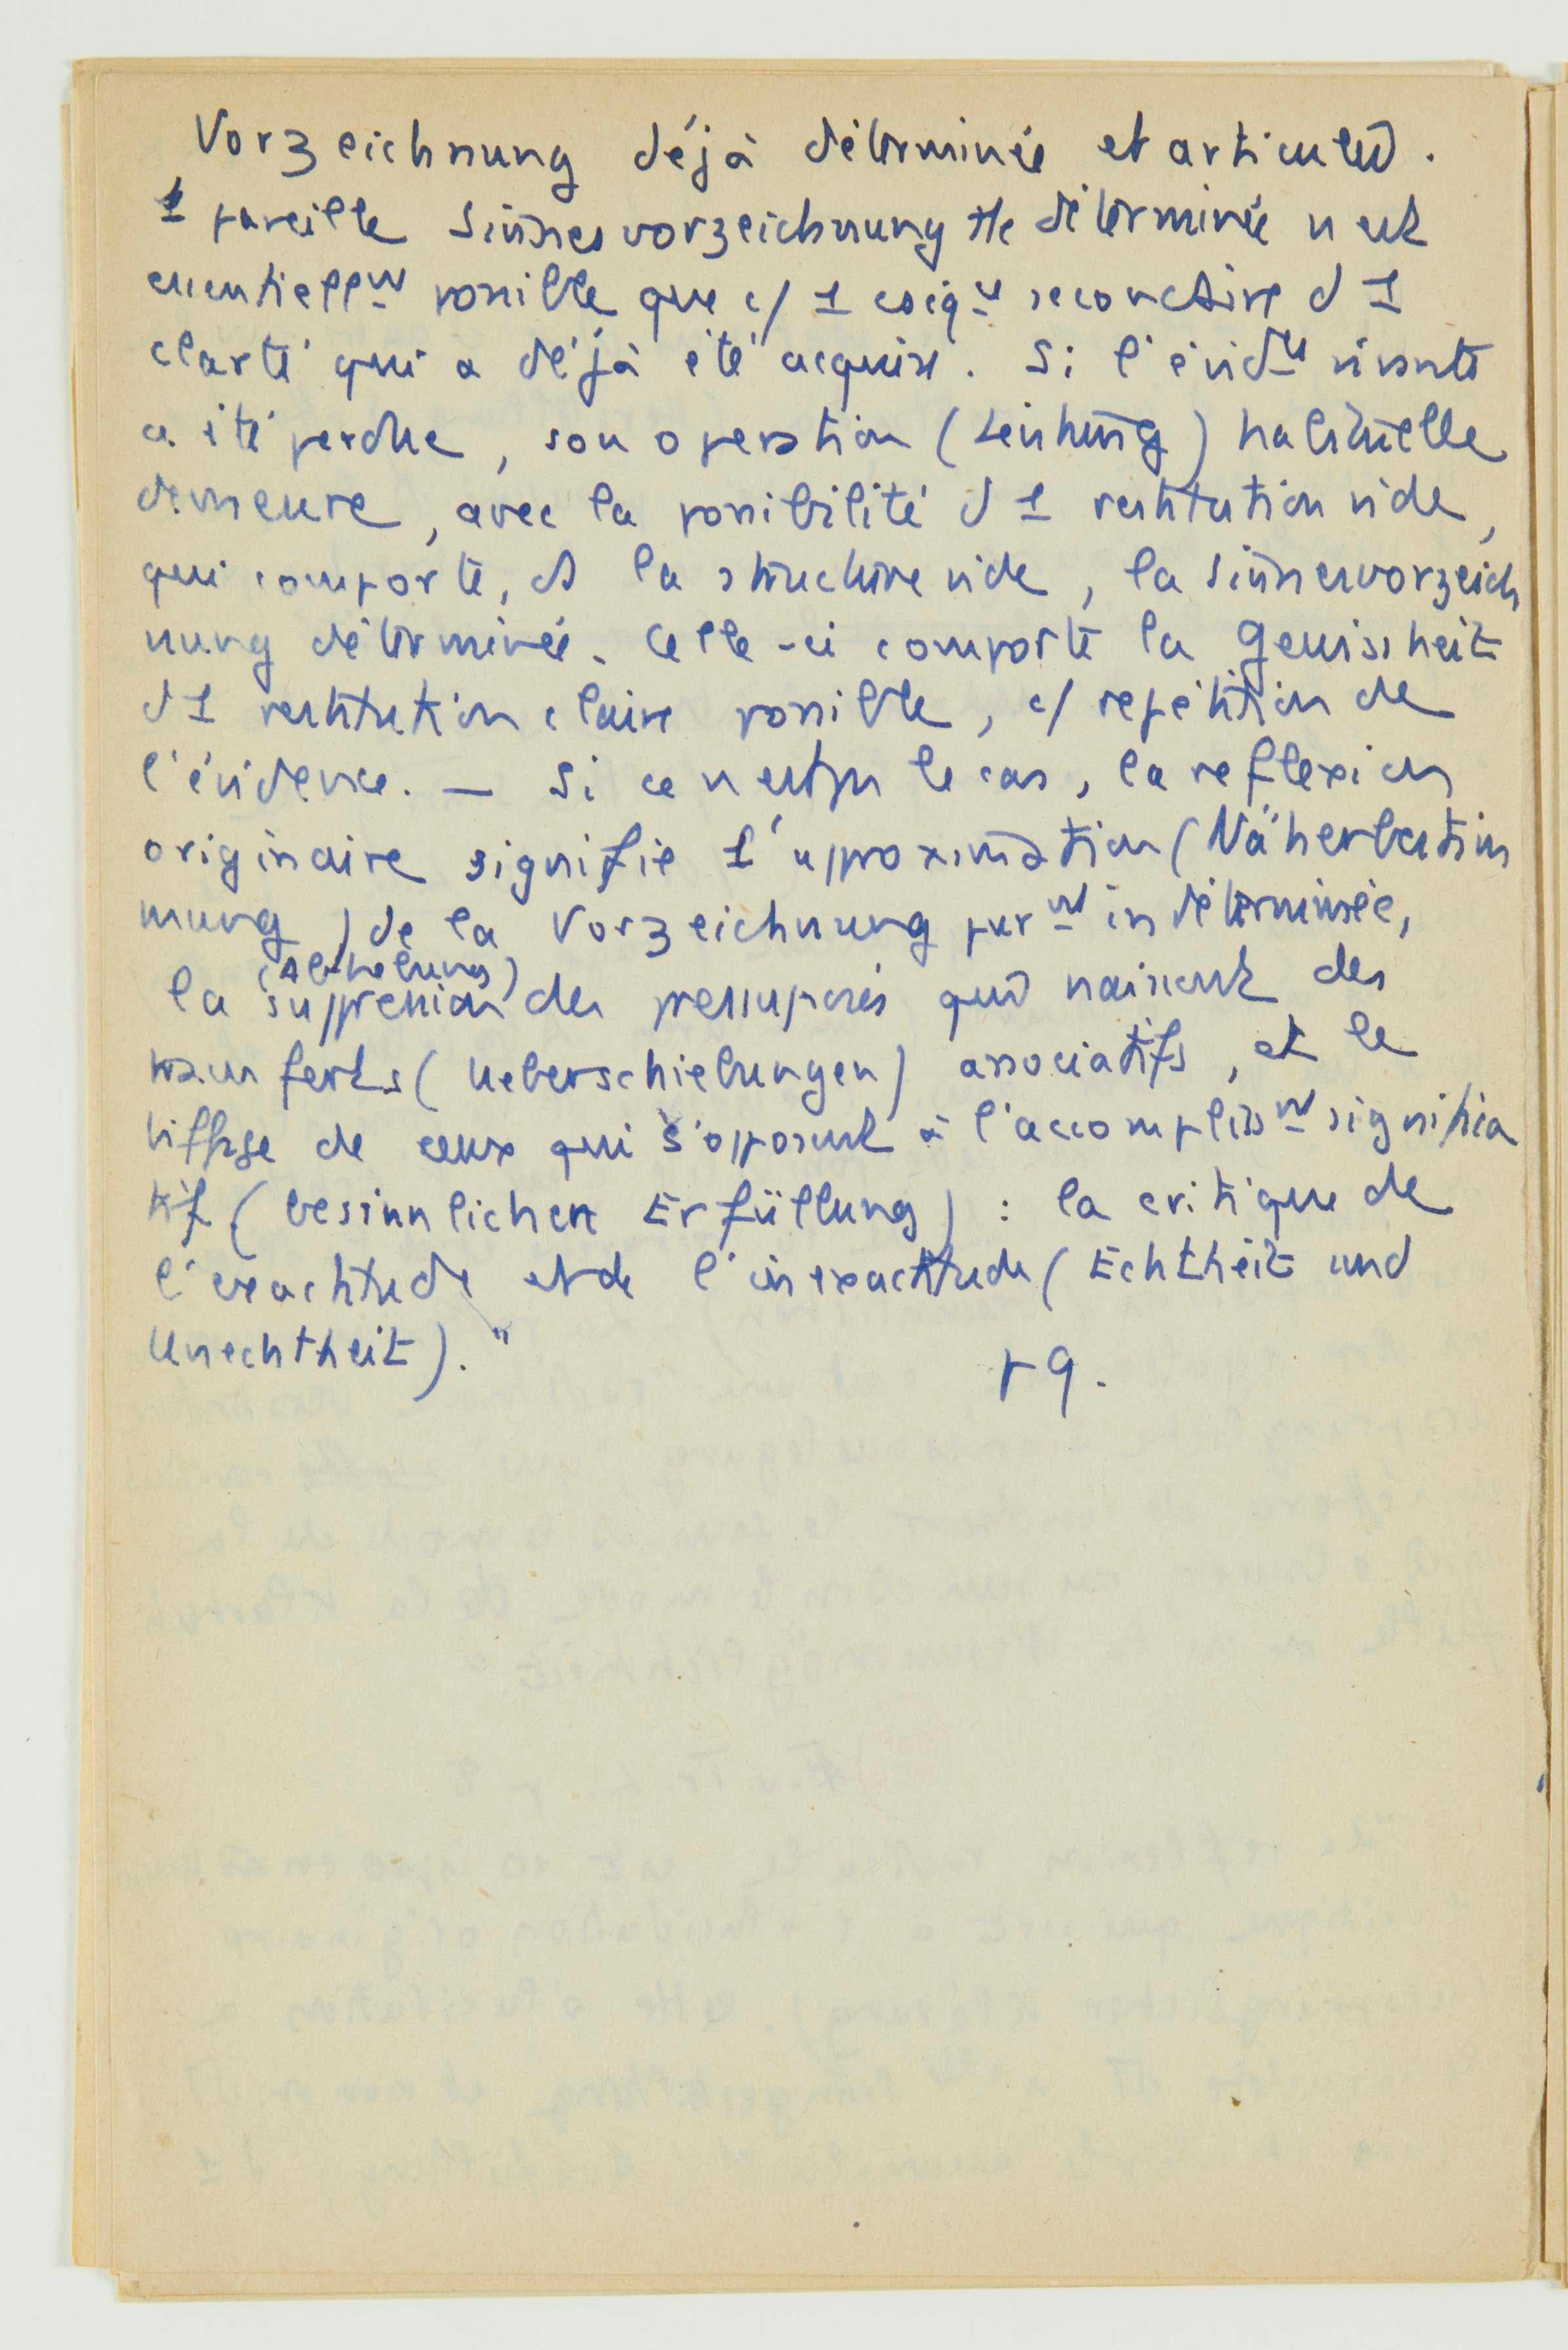 Vorzeichnung déjà déterminée et articulée.
1 pareille Sinnesvorzeichnung tte déterminée n'est
essentiellᵗ possible que c/ 1 csqᵉ reconstive d'1
clarté qui a déjà été acquise. Si l'évidᶜᵉ vivante
a été perdue, son operation (Leistung) habituelle
demeure, avec la possibilité d'1 restitution vide,
qui comporte, ds la structure vide, la Sinnesvorzeich
nung déterminée. Celle-ci comporte la Gewissheit
d'1 restitution claire possible, c/ repétition de
l'évidence. — Si ce n'est pas le cas, la reflexion
originaire signifie 1 approximation (Näherbestim
mung) de la Vorzeichnung purᵗ indéterminée,
(Abhebung)
la suppression des presupposés qui naissent des
transferts (Ueberschiebungen) associatifs, et le
biffage de ceux qui s'opposent à l'accomplissᵗ significa
tif (besinnlichen Erfüllung) : la critique de
l'exactitude et de l'inexactitude (Echtheit und
Unechtheit)."
p 9.